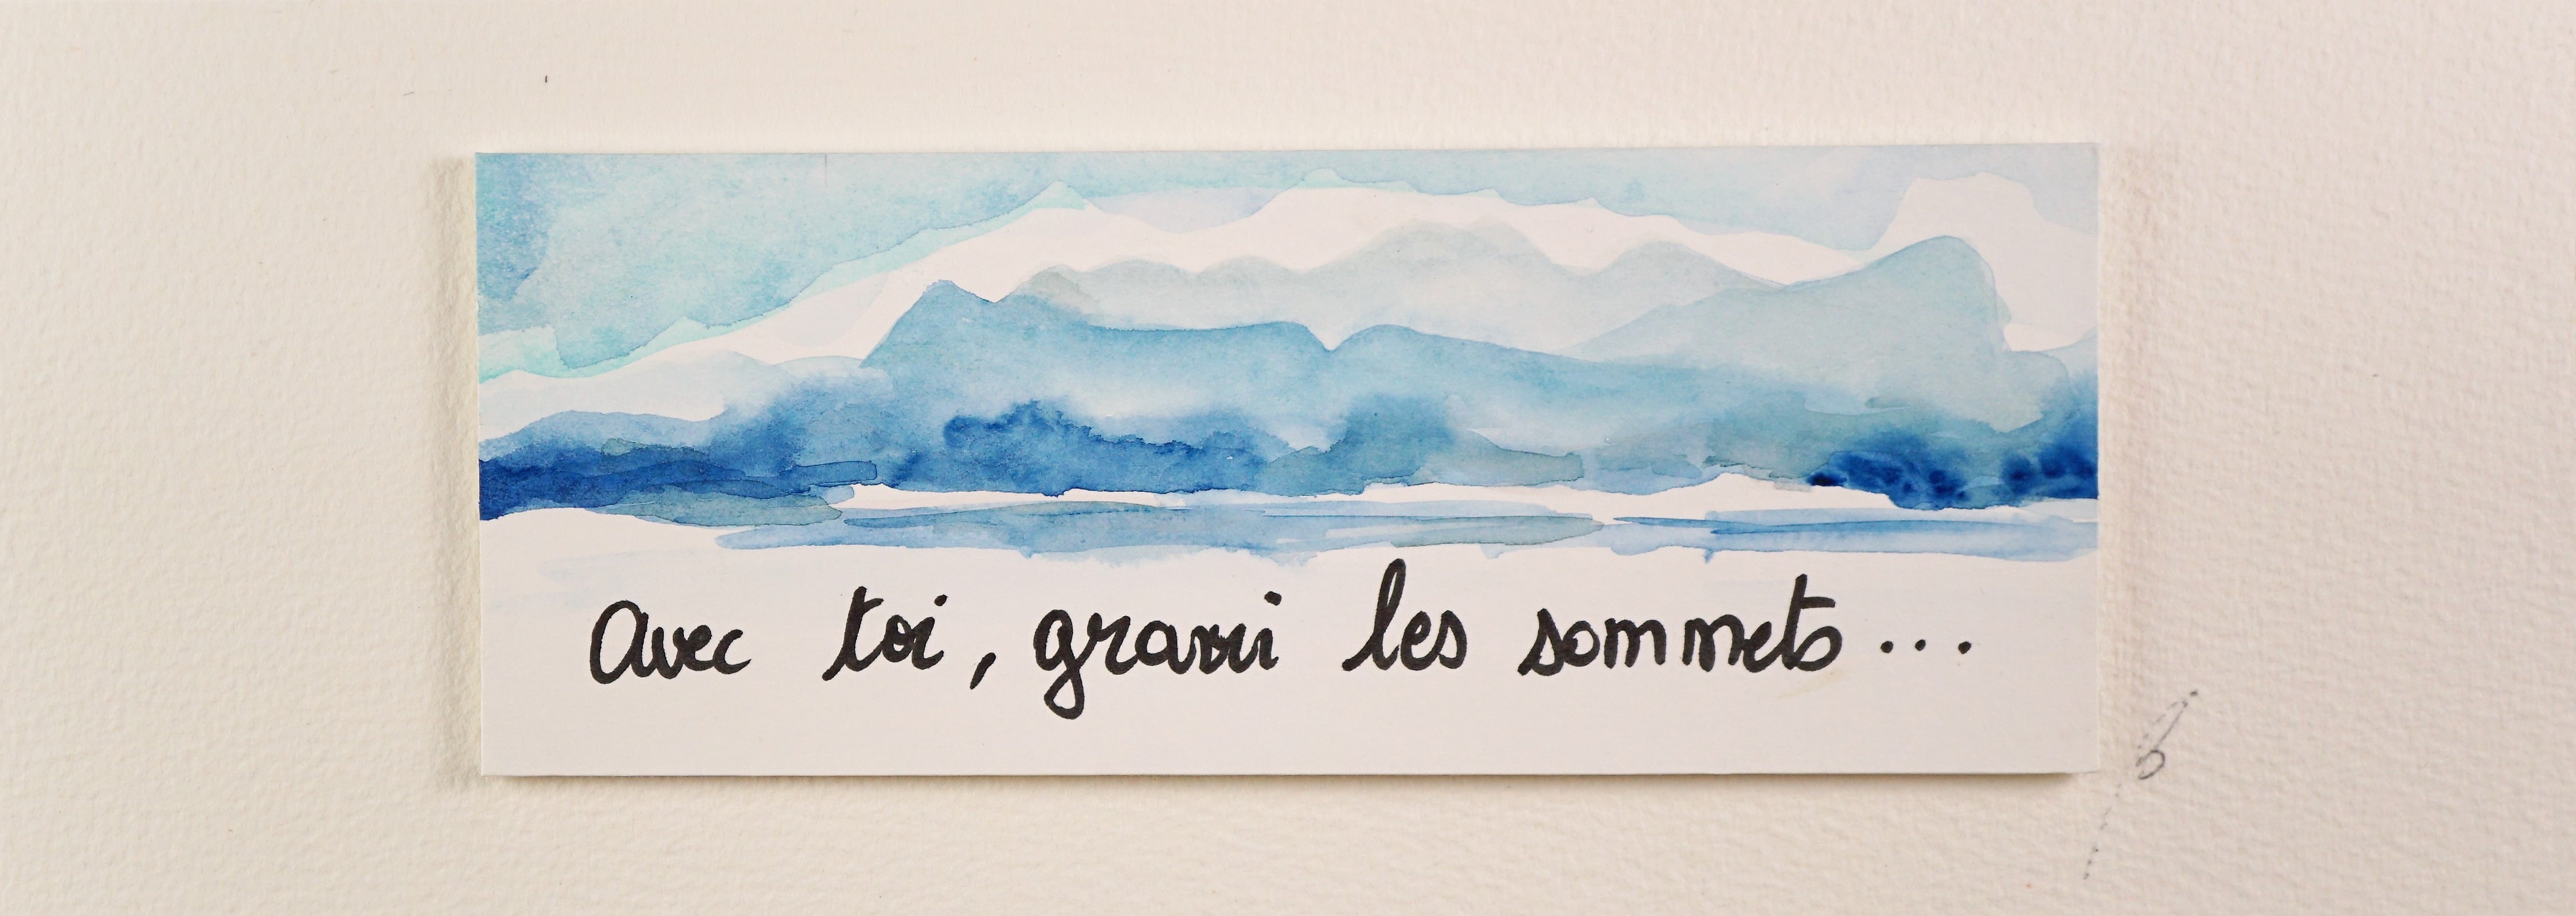 Avec toi, gravir les sommets...